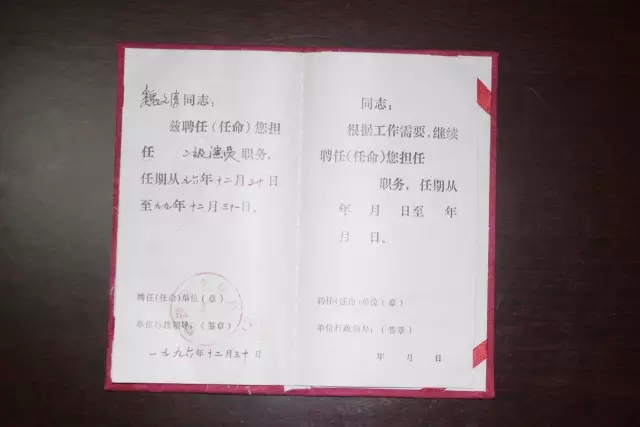 魏文彦同志：
兹聘任（任命）您担
任 二级演员 职务，
任期从九六年十二月三十日
至九九年十二月三十一日。
聘任（任命）单位（章）
单位行政领导：（签章）
一九九六年十二月三十日
同志：
根据工作需要，继续
聘任（任命）您担任
职务，任期从
年 月 日至 年
月 日。
聘任（任命）单位（章）
单位行政领导：（签章）
年 月 日